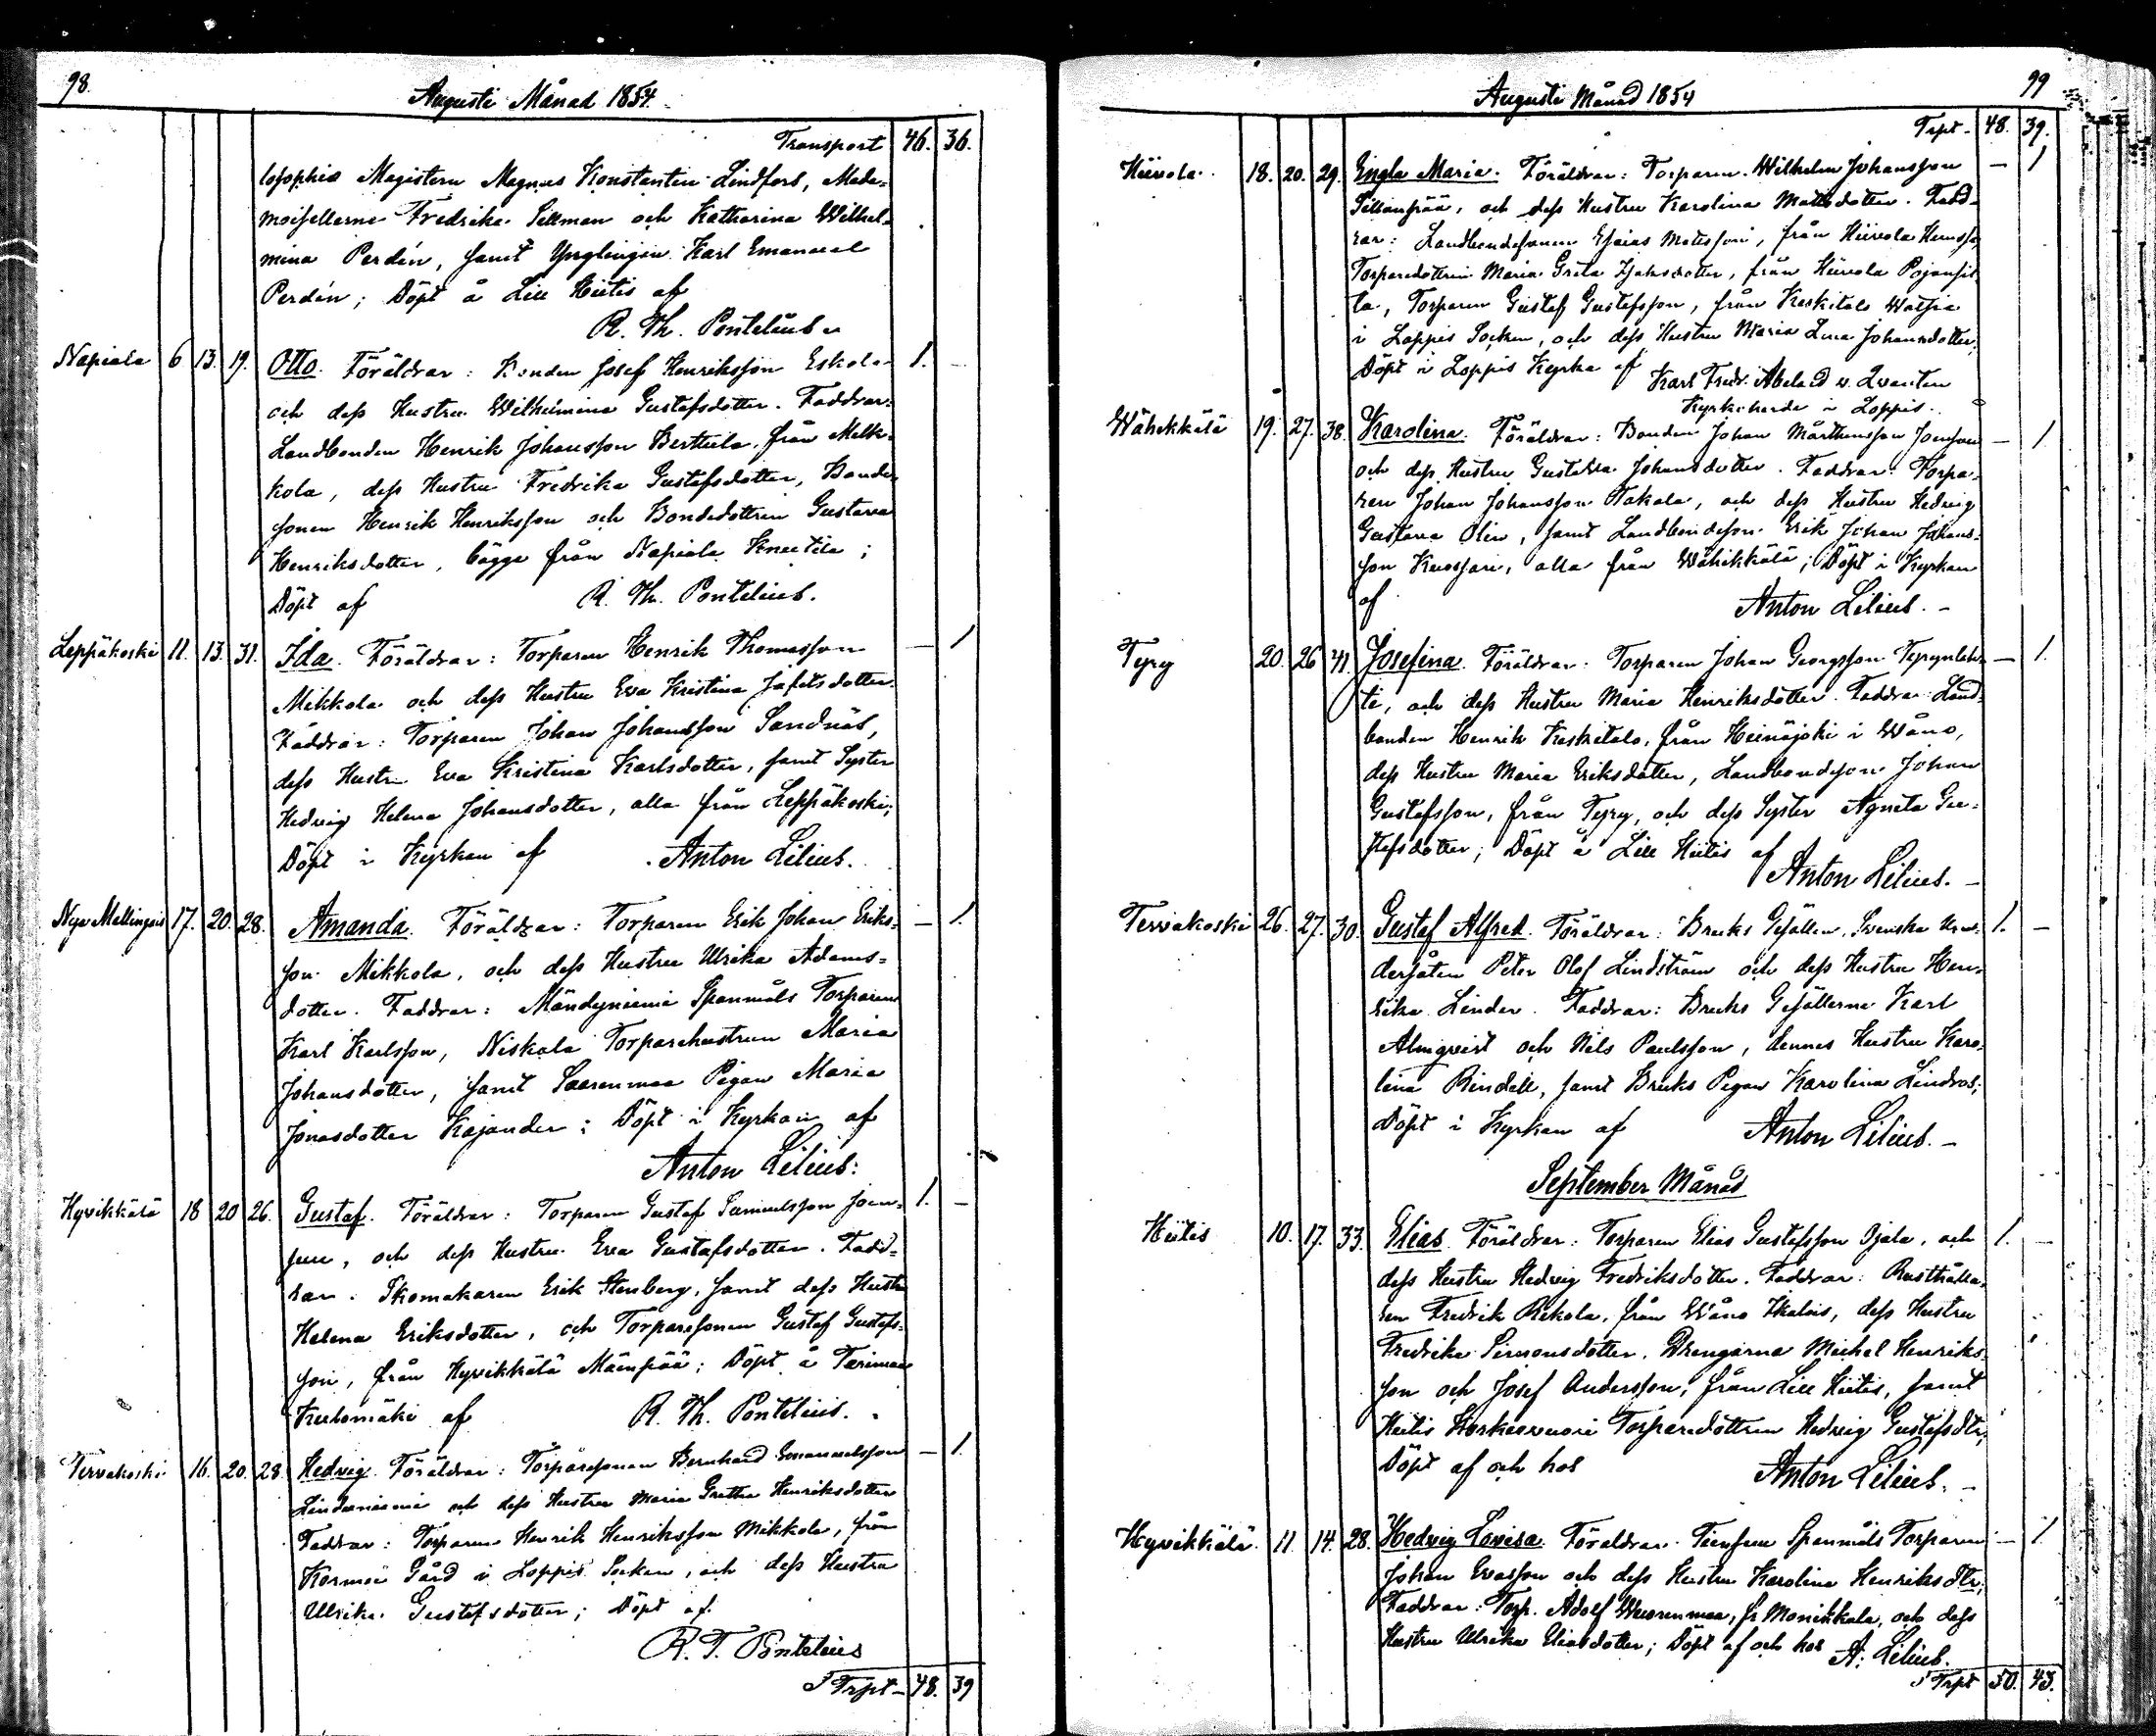 98.
Augusti Månad 1854.
Transport 46. 36.
losophie Magistern Magnus Konstantin Lindfors, Made-
moisellerne Fredrika Sellman och Katharina Wilhel-
mina Perdén, samt Ynglingen Karl Emanuel
Perdén; Döpt å Lill Hiitis af
R. Th. Pontelius
Napiala 6 13. 19. Otto. Föräldrar: Bonden Josef Henriksson Eskola 1. –
och dess Hustru Wilhelmina Gustafsdotter. Faddrar:
Landbonden Henrik Johansson Berttula, från Melk-
kola, dess Hustru Fredrika Gustafsdotter, Bonde-
sonen Henrik Henriksson och Bondedottren Gustava
Henriksdotter, bägge från Napiala Knuutila;
Döpt af R. Th. Pontelius.
Leppäkoski 11. 13. 31. Ida. Föräldrar: Torparen Henrik Thomasson – 1
Mikkola och dess Hustru Eva Kristina Jafetsdotter.
Faddrar: Torparen Johan Johansson Sandnäs,
dess Hustru Eva Kristina Karlsdotter, samt Syster
Hedvig Helena Johansdotter, alla från Leppäkoski;
Döpt i Kyrkan af Anton Lilius.
Nya Mallinge 17. 20. 28. Amanda. Föräldrar: Torparen Erik Johan Eriks- – 1.
son Mikkola, och dess Hustru Ulrika Adams-
dotter. Faddrar: Mändyniemi Spanmåls Torparen
Karl Karlsson, Niskala Torparehustrun Maria
Johansdotter, samt Saarenmaa Pigan Maria
Jonasdotter Kajander; Döpt i Kyrkan af
Anton Lilius.
Hyvikkälä 18 20 26. Gustaf. Föräldrar: Torparen Gustaf Samuelsson Joen- 1. –
suu, och dess Hustru Eva Gustafsdotter. Fadd-
rar: Skomakaren Erik Stenberg, samt dess Hustru
Helena Eriksdotter, och Torparesonen Gustaf Gustafs-
son, från Hyvikkälä Mäenpää; Döpt å Tarimaa
Kuhomäki af R. Th. Pontelius.
Tervakoski 16. 20. 28. Hedvig. Föräldrar: Torparesonen Bernhard Emanuelsson – 1.
Lindaniemi och dess Hustru Maria Gretha Henriksdotter
Faddrar: Torparen Henrik Henriksson Mikkola, från
Kormu Gård i Loppis Socken, och dess Hustru
Ulrika Gustafsdotter; Döpt af
R. T. Pontelius
Trpt – 48. 39
99
Augusti Månad 1854
Trpt – 48. 39.
Hiivola 18. 20. 29. Engla Maria. Föräldrar: Torparen Wilhelm Johansson – 1
Sillanpää, och dess Hustru Karolina Mattsdotter. Fadd-
rar: Landbondesonen Esaias Matsson, från Hiivola
Torparedottren Maria Greta Isaksdotter, från Hiivola Pajansil-
ta, Torparen Gustaf Gustafsson, från Keskitalo
i Loppis Socken, och dess Hustru Maria Lena Johansdotter;
Döpt i Loppis Kyrka af Karl Fredr. Abel v. Qvanten
Kyrkoherde i Loppis.
Wähikkälä 19. 27. 38. Karolina. Föräldrar: Bonden Johan Mårthensson Joensuu – 1
och dess Hustru Gustava Johansdotter. Faddrar: Torpa-
ren Johan Johansson Takala, och dess Hustru Hedvig
Gustava Olin, samt Landbondeson Erik Johan Johans-
son Kuossari, alla från Wähikkälä; Döpt i Kyrkan
af Anton Lilius. –
Tyry 20. 26 41. Josefina. Föräldrar: Torparen Johan Georgsson Tyrynlah- – 1.
ti, och dess Hustru Maria Henriksdotter. Faddrar: Land-
bonden Henrik Keskitalo, från Heinäjoki i Wåno,
dess Hustru Maria Eriksdotter, Landbondeson Johan
Gustafsson, från Tyry, och dess Syster Agneta Gu-
stafsdotter; Döpt å Lill Hiitis af
Anton Lilius. –
Tervakoski 26. 27. 30. Gustaf Alfred. Föräldrar: Bruks Gesällen, Svenska Un- 1. –
dersåten Peter Olof Lindström och dess Hustru Hen-
rika Linder. Faddrar: Bruks Gesällerne Karl
Almqvist och Nils Paulsson, dennes Hustru Karo-
lina Rindell, samt Bruks Pigan Karolina Lindros;
Döpt i Kyrkan af Anton Lilius. –
September Månad
Hiitis 10. 17. 33. Elias. Föräldrar: Torparen Elias Gustafsson Ojala, och 1. –
dess Hustru Hedvig Fredriksdotter. Faddrar: Rusthålla-
ren Fredrik Rekola, från Wåno Ikalois, dess Hustru
Fredrika Simonsdotter, Drengarna Michel Henriks-
son och Josef Andersson, från Lill Hiitis, samt
Hiitis Korkeavuori Torparedottren Hedvig Gustafsdtr;
Döpt af och hos Anton Lilius. –
Hyvikkälä 11. 14. 28. Hedvig Lovisa. Föräldrar: Spanmåls Torparen – 1
Johan Evasson och dess Hustru Karolina Henriksdtr;
Faddrar: Torp. Adolf Wuorenmaa, fr Monikkala, och dess
Hustru Ulrika Eliasdotter; Döpt af och hos A. Lilius.
Trpt 50. 43.